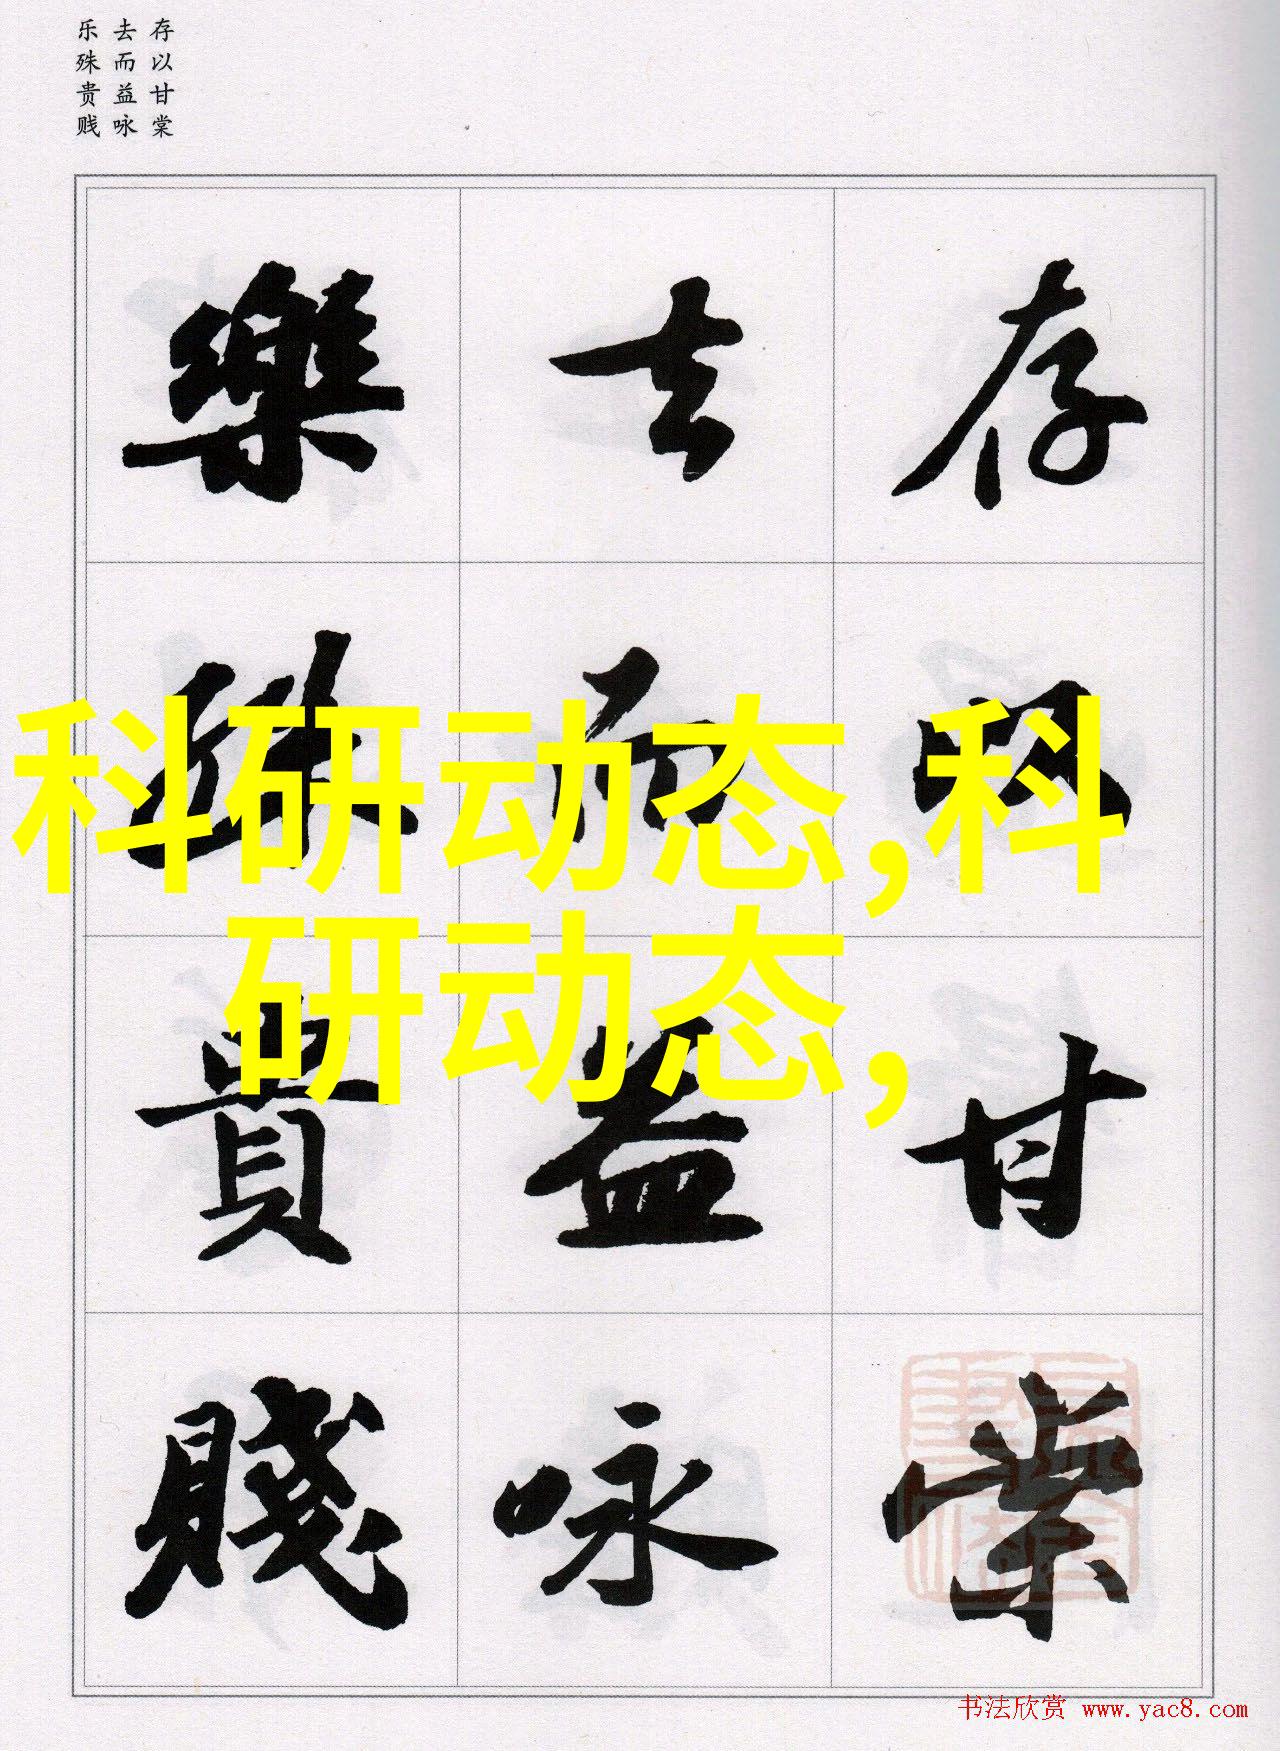 存以甘棠
去而益咏
乐殊贵贱
存以甘棠
去而益咏
樂殊貴賤
科研动态,科
研动态,
书法欣赏 www.yac8.com